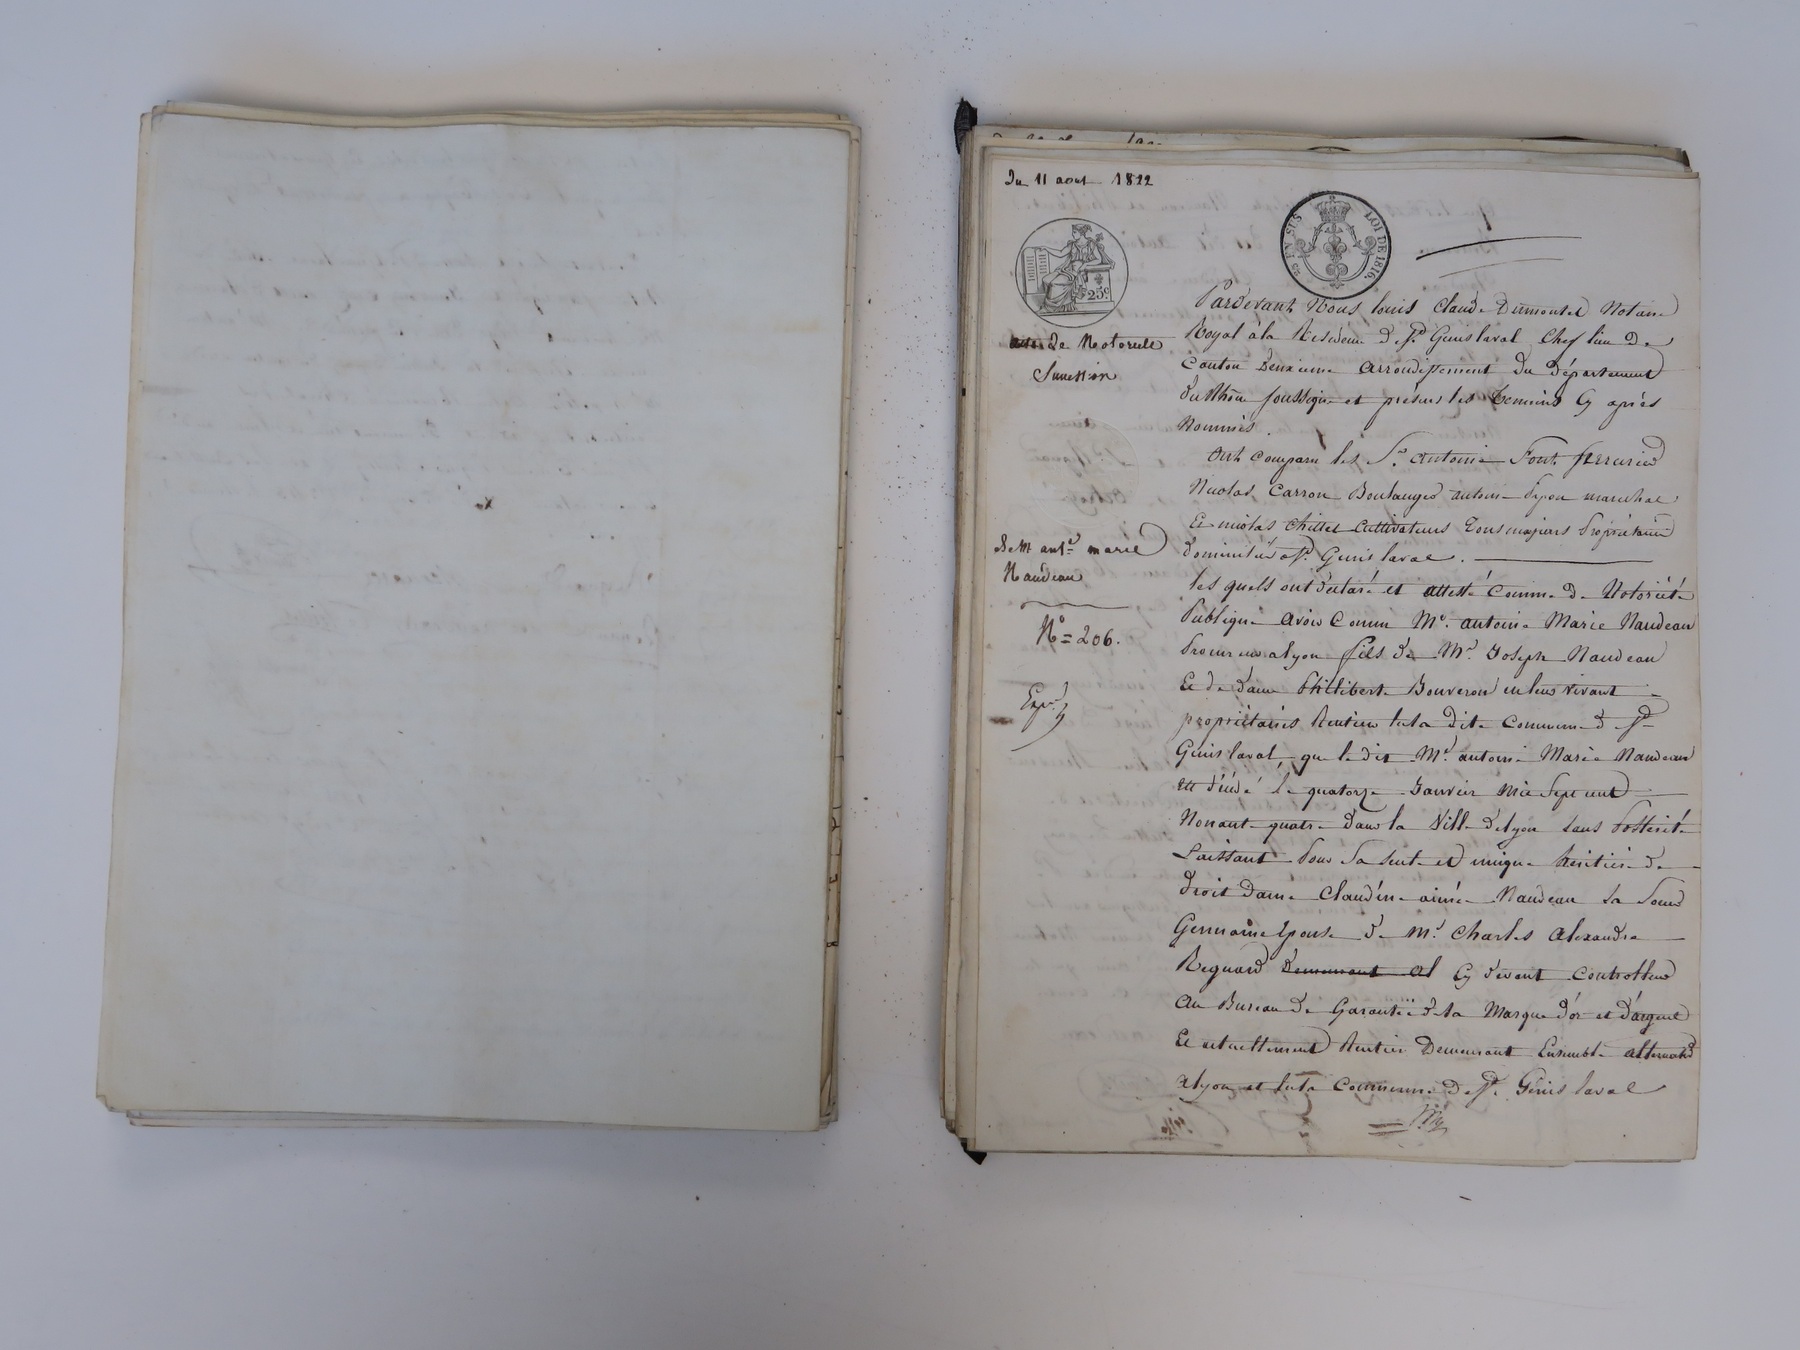 Du 11 aout 1822
EN SUS LOI DE 1816.
25c
acte de Notoriete
Succession
de M ant.e marie
Naudeau
N° = 206.
Exp.é
Pardevant Nous louis Claude Dumontel Notaire
Royal à la Residence de St. Genis laval Chef lieu De
Canton Deuxieme arrondissement Du Département
du Rhône soussigné et présens les temoins Cy après
Nommés.
Ont Comparu les Sr. antoine Font
Nicolas Carron Boulanger antoine marechal
Et nicolas Chillet Cultivateurs tous majeurs Proprietaires
Domiciliés a St. Genis laval.
les quels ont déclaré et attesté Comme de Notoriété
Publique avoir Connu Mr. antoine Marie Naudeau
Procureur a lyon fils de Mr. Joseph Naudeau
Et de dame Philliberte Bouveron en leur vivant
propriétaires Rentiers la dite Commune de St
Genis laval, que le dit Mr. antoine Marie Naudeau
est décédé le quatorze Janvier mil Sept cent
Nonante quatre dans la Ville de lyon sans Postérité
Laissant Pour Sa seule et unique héritière de
droit Dame Claudine aimée Naudeau sa Soeur
Germaine Epouse de Mr. Charles Alexandre
Regnard Demeurant al Cy devant Controlleur
Au Bureau de Garantie de la Marque d'or et d'argent
Et actuellement Rentier Demeurant Ensemble
a lyon et Commune De St. Genis laval